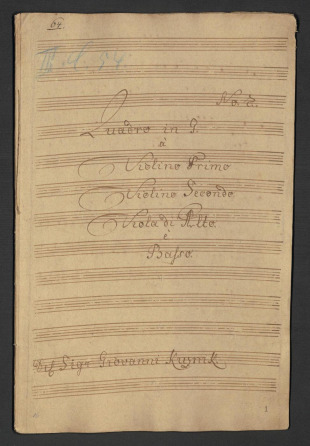 64.
III. d. 54.
No: 2.
Quadro in G.
à
Violino Primo
Violino Secondo
Viola di Alto.
è
Basso.
Del Sigr Giovanni
1